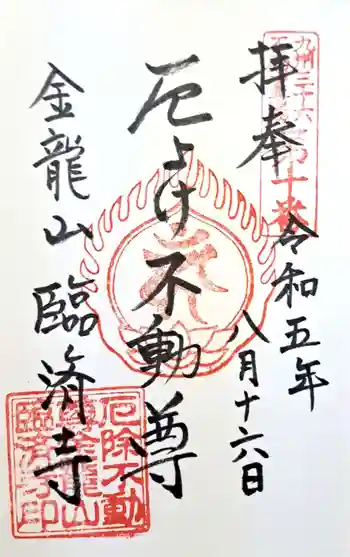 奉拝
令和五年
八月十六日
厄よけ不動尊
金龍山 臨済寺
厄除不動
尊金龍山
臨済寺印